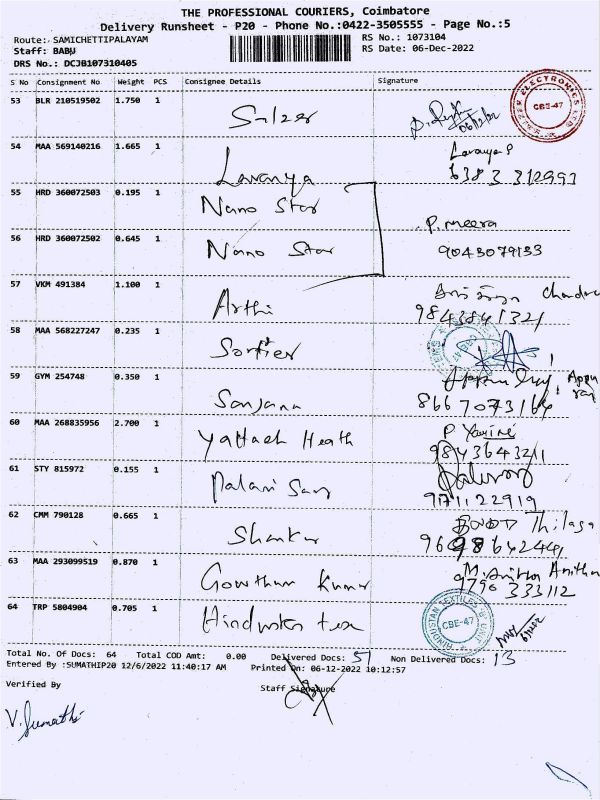 THE PROFESSIONAL COURIERS, Coimbatore
Delivery Runsheet - P20 - Phone No.:0422-3505555 - Page No.:5
Route: SAMICHETTIPALAYAM RS No.: 1073104
Staff: BABU RS Date: 06-Dec-2022
DRS No.: DCJB107310405
S No Consignment No Weight PCS Consignee Details Signature
53 BLR 210519502 1.750 1 Sulzer 06/12/22 CBE-47
54 MAA 569140216 1.665 1 Lavanya Lavanya S
6383 312993
55 HRD 360072503 0.195 1 Nano Star
P. Meera
56 HRD 360072502 0.645 1 Nano Star 9043079133
57 VKM 491384 1.100 1 Arthi Chandra
9843841321
58 MAA 568227247 0.235 1
59 GYM 254748 0.350 1 Sanjana Appu raj
8667073164
60 MAA 268835956 2.700 1 Yattach Heath P Yamini
9843643211
61 STY 815972 0.155 1 Palani Samy
971122919
62 CMM 790128 0.665 1 Shankar Thilaga
63 MAA 293099519 0.870 1 Gowtham Kumar M. Anitha Anitha
9790 333112
64 TRP 5804904 0.705 1 Hindustan tex HINDUSTAN TEXTILES CBE-47
Total No. Of Docs: 64 Total COD Amt: 0.00 Delivered Docs: 51 Non Delivered Docs: 13
Entered By :SUMATHIP20 12/6/2022 11:40:17 AM Printed On: 06-12-2022 10:12:57
Verified By Staff Signature
V. Sumathi